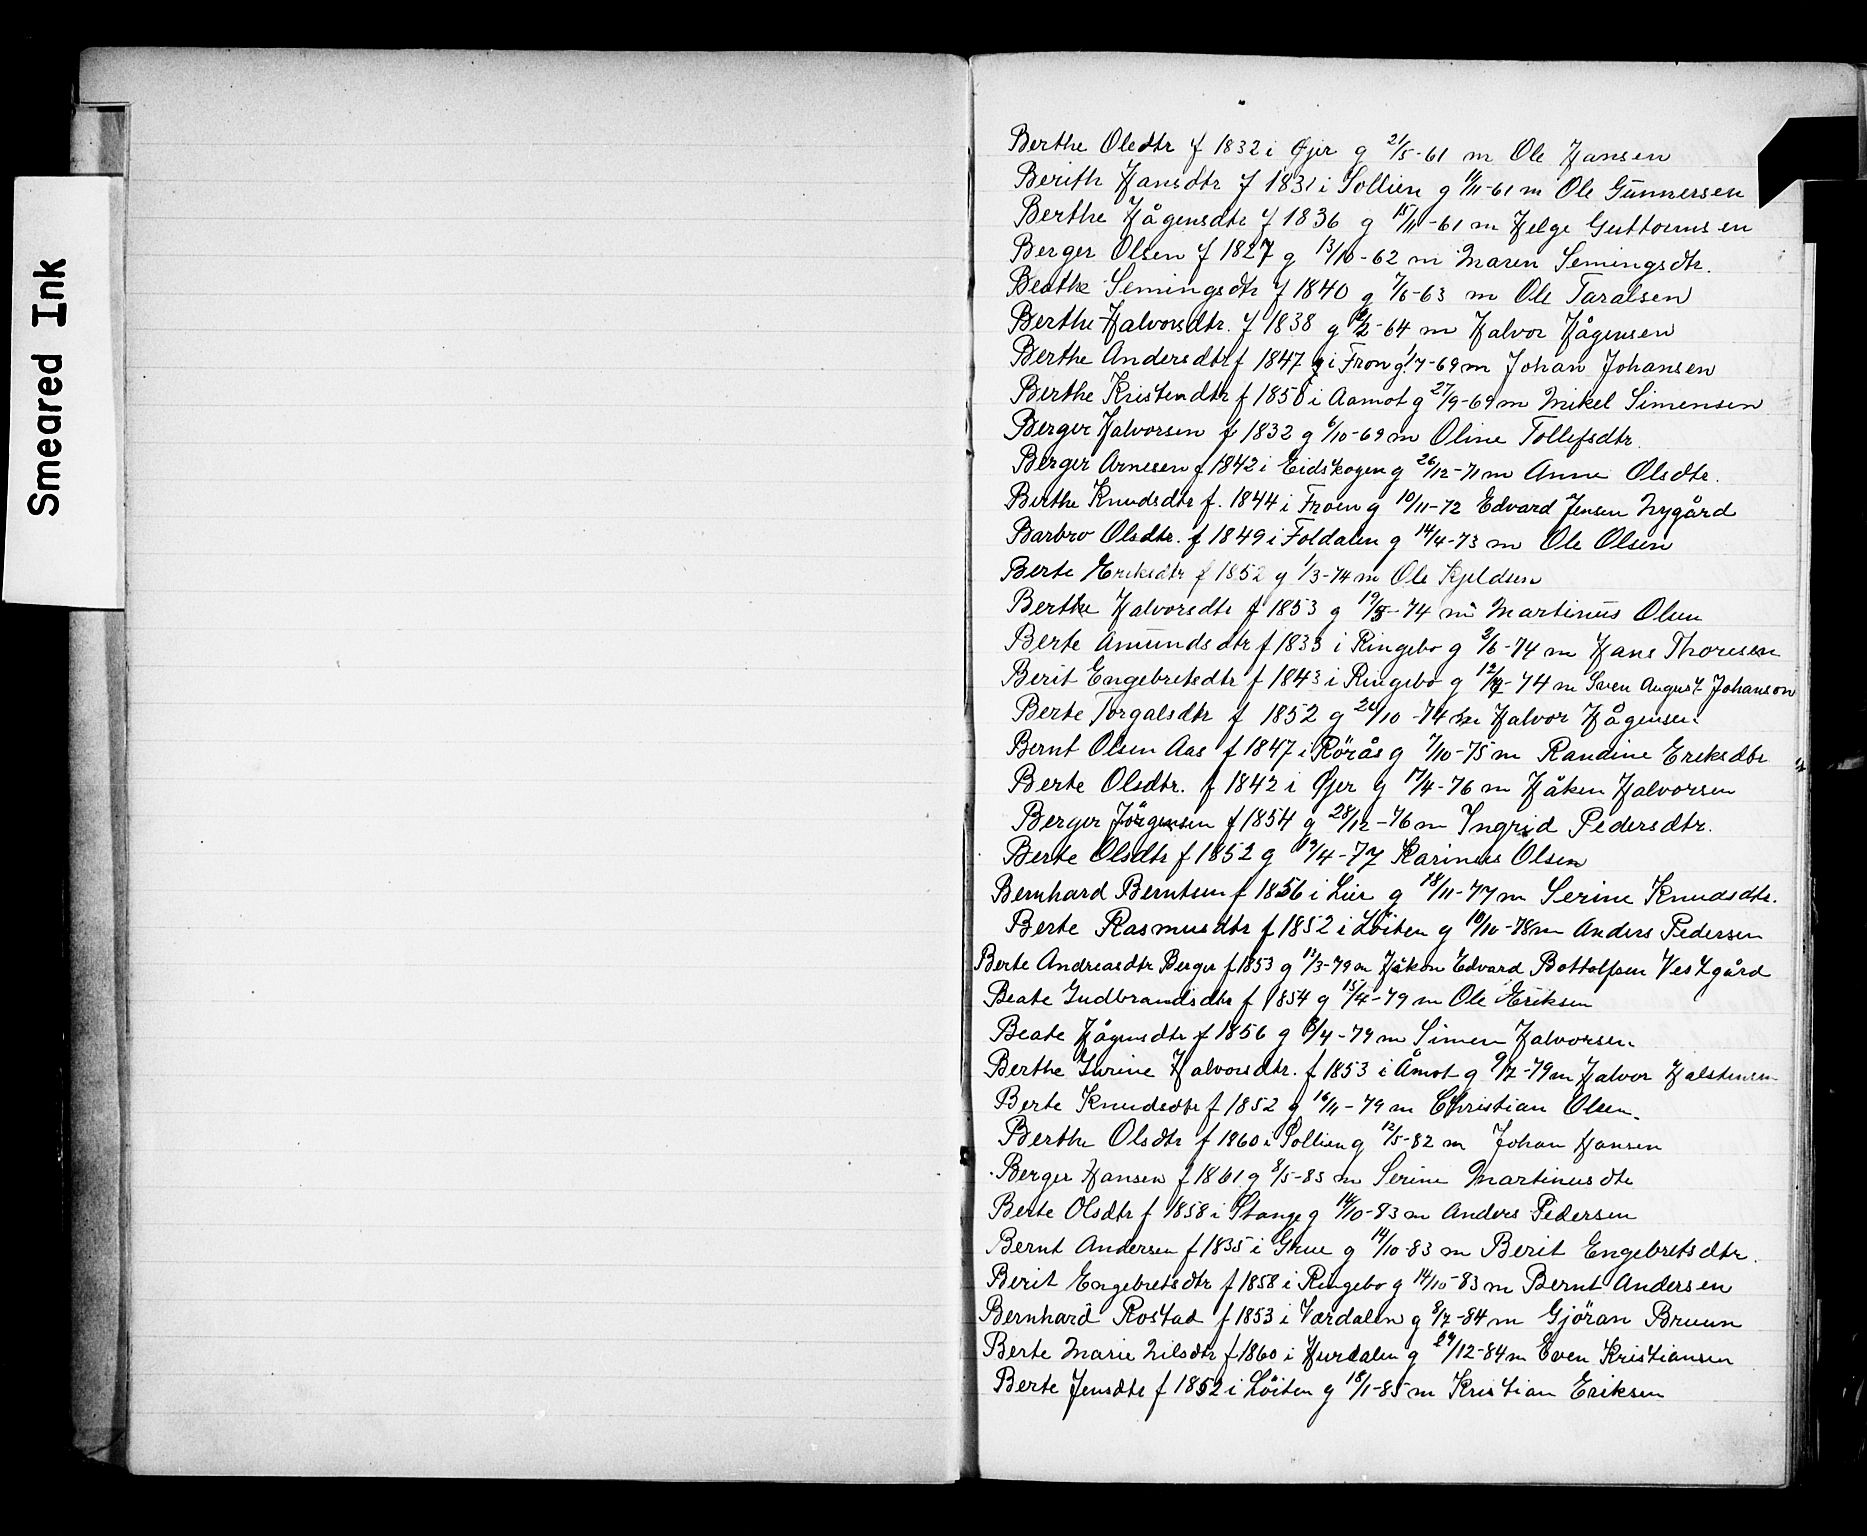 Smeared Ink
Berthe Oledtr f 1832 i Øjer g 21/5-61 m Ole Hansen
Berith Hansdtr f 1831 i Sollien g /11-61 m Ole Gunnersen
Berthe Hågensdtr f 1836 g 15/11-61 m Helge Guttormsen
Berger Olsen f 1827 g 13/10-62 m Maren Semingsdtr.
Beathe Semingsdtr f 1840 g 7/6-63 m Ole Taralsen
Berthe Halvorsdtr. f 1838 g /2-64 m Halvor Hågensen
Berthe Andersdtr f 1847 i Fron g 1/7-69 m Johan Johansen
Berthe Kristendtr f 1850 i Aamot g 27/9-69 m Mikel Simensen
Berger Halvorsen f 1832 g 6/10-69 m Oline Tollefsdtr.
Berger Arnesen f 1842 i Eidskogen g 26/12-71 m Anne Olsdtr.
Berthe Knudsdtr f. 1844 i Froen g 10/11-72 Edvard Jensen Nygård
Barbro Olsdtr. f 1849 i Foldalen g 14/4-73 m Ole Olsen
Berte Eriksdtr f 1852 g 1/3-74 m Ole Kjeldsen
Berthe Halvorsdtr f 1853 g 19/5-74 m Martinus Olsen
Berte Amundsdtr f 1833 i Ringebo g 2/6-74 m Hans Thoresen
Berit Engebretsdtr f 1843 i Ringebo g 12/7-74 m Sven August Johanson
Berte Torgalsdtr f 1852 g 26/10-74 m Halvor Hågensen.
Bernt Olsen Aas f 1847 i Rörås g 7/10-75 m Randine Eriksdtr
Berte Olsdtr. f 1842 i Øjer g 17/4-76 m Håken Halvorsen
Berger Jörgensen f 1854 g 28/12-76 m Ingrid Pedersdtr.
Berte Olsdtr f 1852 g 19/4-77 Karinus Olsen
Bernhard Berntsen f 1856 i Lier g 18/11-77 m Serine Knudsdtr.
Berte Rasmusdtr f 1852 i Löiten g 10/10-78 m Anders Pedersen
Berte Andreasdtr Berger f 1853 g 17/3-79 m Håkon Edvard Bottolfsen Vestgård
Beate Gudbrandsdtr f 1854 g 15/4-79 m Ole Eriksen
Beate Hågensdtr f 1856 g 8/4-79 m Simen Halvorsen.
Berthe Gurine Halvorsdtr. f 1853 i Åmot g 9/7-79 m Halvor Halstensen
Berte Knudsdtr f 1852 g 16/11-79 m Christian Olsen.
Berthe Olsdtr f 1860 i Sollien g 12/5-82 m Johan Hansen
Berger Hansen f 1861 g 8/5-83 m Serine Martinusdtr
Berte Olsdtr f 1858 i Stange g 14/10-83 m Anders Pedersen
Bernt Andersen f 1835 i Grue g 14/10-83 m Berit Engebretsdtr.
Berit Engebretsdtr f 1858 i Ringebo g 14/10-83 m Bernt Andersen
Bernhard Rostad f 1853 i Værdalen g 8/7-84 m Gjöran Bruun
Berte Marie Nilsdtr f 1860 i Hurdalen g 29/12-84 m Even Kristiansen
Berte Jensdtr f 1852 i Löiten g 18/1-85 m Kristian Eriksen